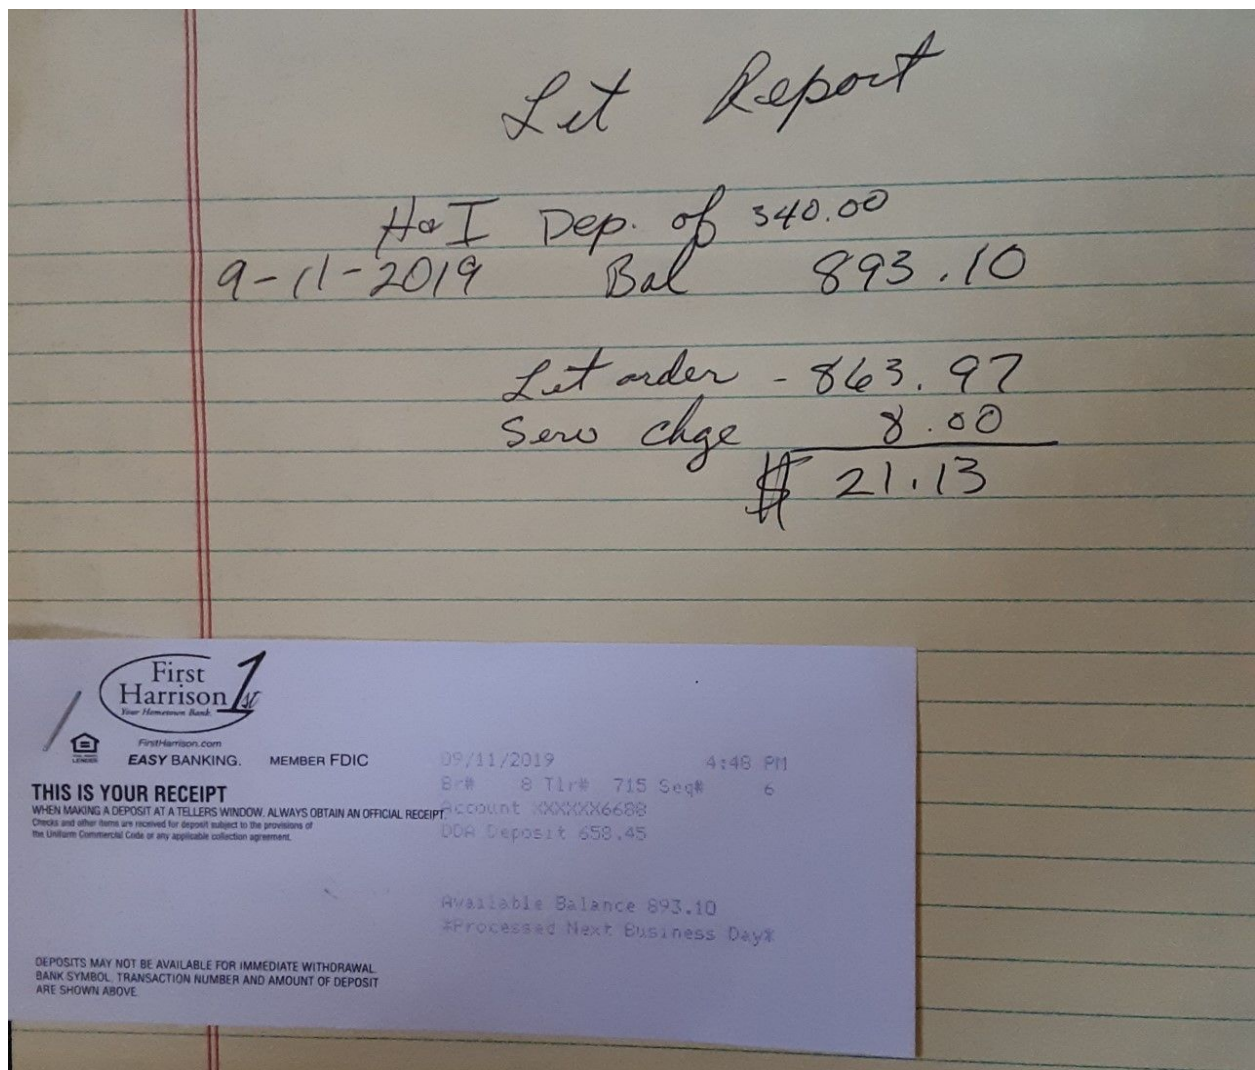 Lit Report
H&I Dep. of 340.00
9-11-2019 Bal 893.10
Lit order - 863.97
Serv Chge 8.00
$ 21.13
First
Harrison 1st
Your Hometown Bank
FirstHarrison.com
EASY BANKING. MEMBER FDIC
THIS IS YOUR RECEIPT
WHEN MAKING A DEPOSIT AT A TELLERS WINDOW, ALWAYS OBTAIN AN OFFICIAL RECEIPT.
Checks and other items are received for deposit subject to the provisions of
the Uniform Commercial Code or any applicable collection agreement.
09/11/2019 4:48 PM
Br# 8 Tlr# 715 Seq# 6
Account XXXXXX6688
DDA Deposit 658.45
Available Balance 893.10
*Processed Next Business Day*
DEPOSITS MAY NOT BE AVAILABLE FOR IMMEDIATE WITHDRAWAL.
BANK SYMBOL, TRANSACTION NUMBER AND AMOUNT OF DEPOSIT
ARE SHOWN ABOVE.